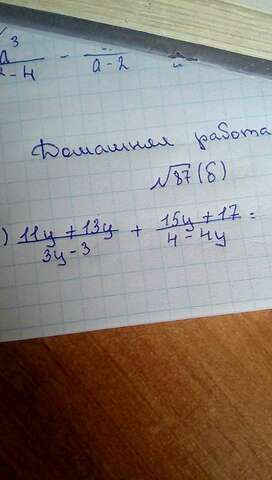 a³/a-4 - /a-2
Домашняя работа
√87(б)
) 11y + 13y/3y-3 + 15y + 17/4-4y =